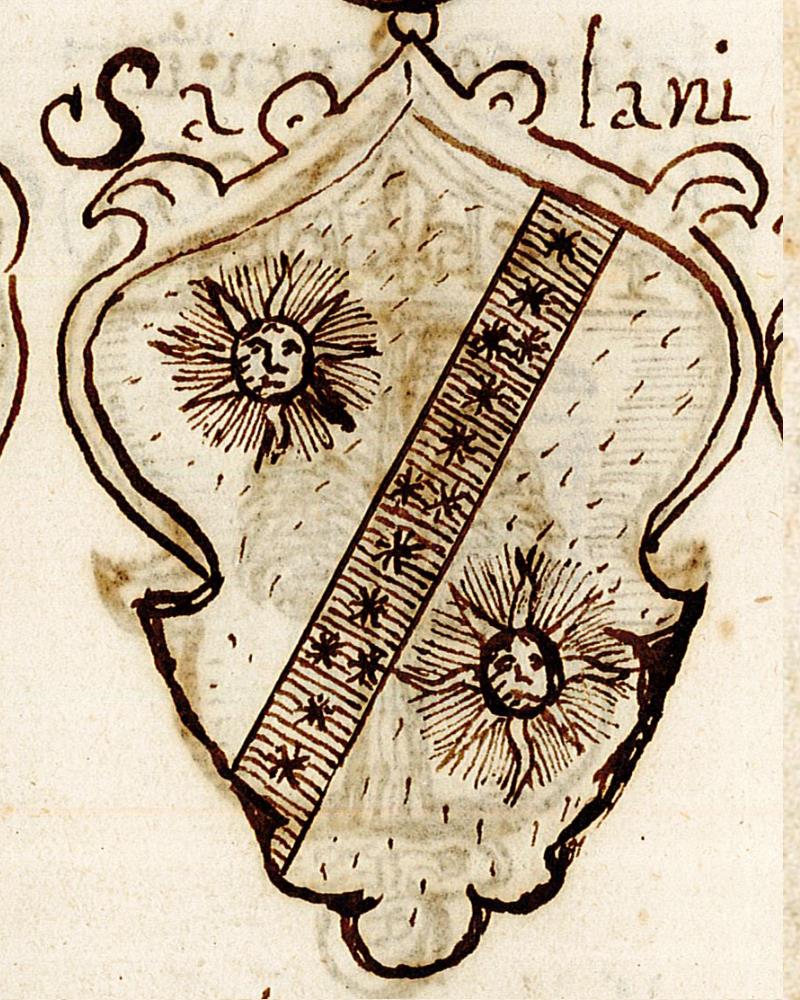 Sa lani